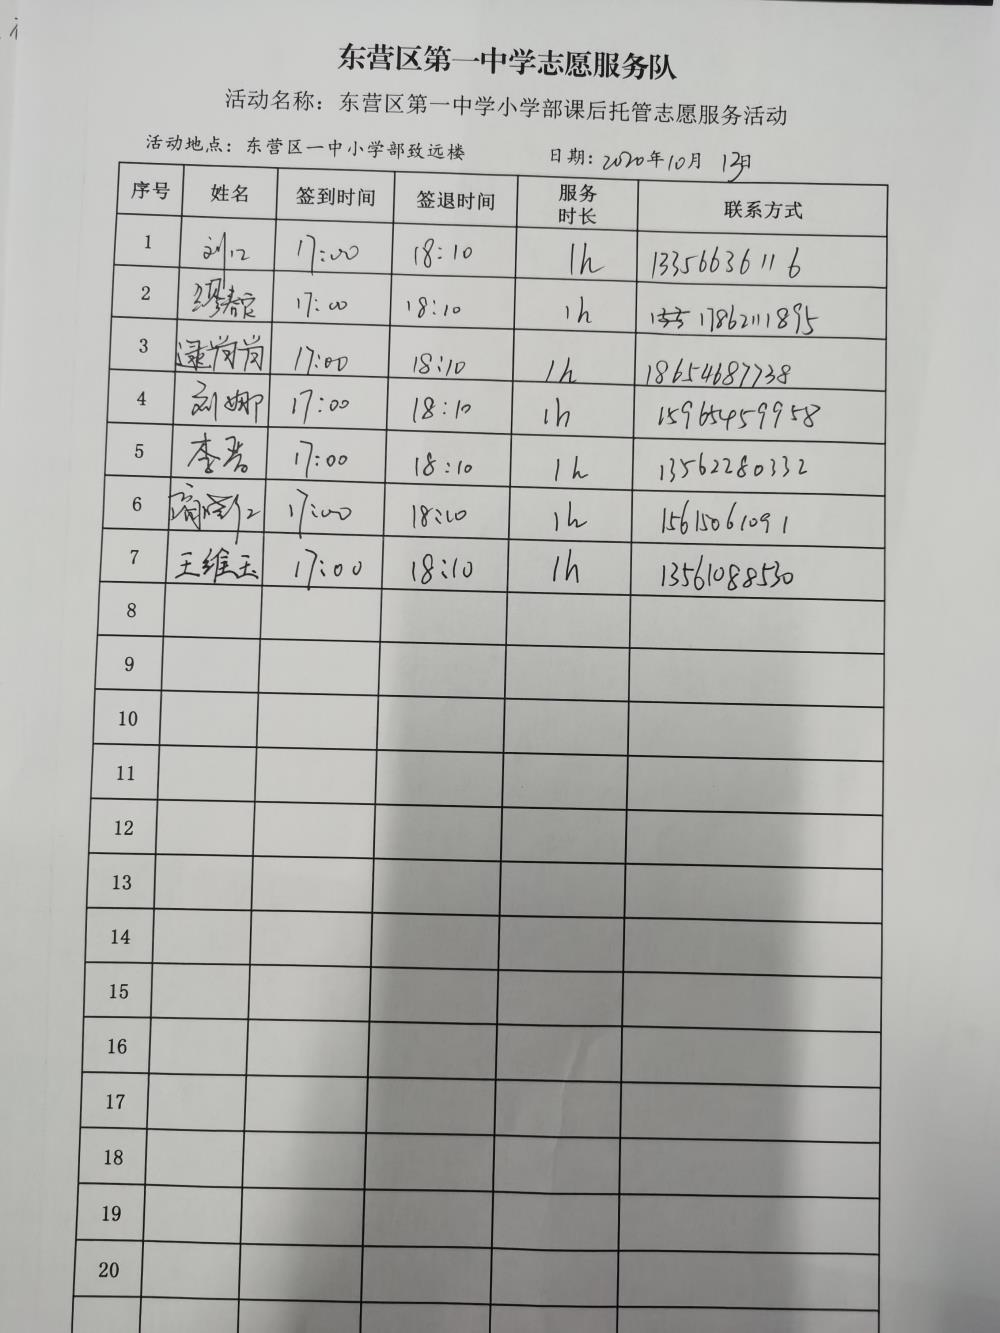 东营区第一中学志愿服务队
活动名称：东营区第一中学小学部课后托管志愿服务活动
活动地点：东营区一中小学部致远楼 日期：2020年10月13日
序号 姓名 签到时间 签退时间 服务时长 联系方式
1 17:00 18:10 1h 13356636116
2 17:00 18:10 1h 17862111895
3 逯岗岗 17:00 18:10 1h 18654687738
4 刘娜 17:00 18:10 1h 15965459958
5 17:00 18:10 1h 13562280332
6 17:00 18:10 1h 15615061091
7 王维玉 17:00 18:10 1h 13561088530
8
9
10
11
12
13
14
15
16
17
18
19
20